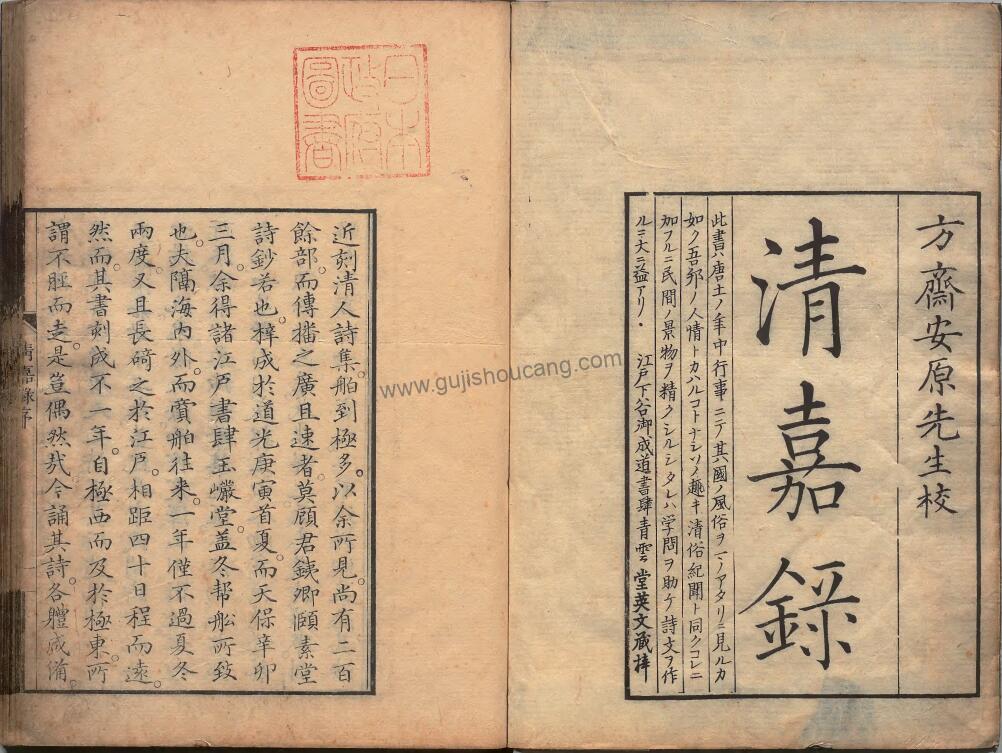 方齋安原先生校
清嘉錄
此書ハ唐土ノ年中行事ニテ其國ノ風俗ヲマノアタリニ見ルカ
如ク吾邦ノ人情トカハルコトナシソノ趣キ清俗紀聞ト同クコレニ
加フルニ民間ノ景物ヲ精クシルシタレハ学問ヲ助ケ詩文ヲ作
ルニ大ニ益アリ・
江戸下谷御成道書肆青雲堂英文蔵梓
日本政府圖書
近刻清人詩集舶到極多。以余所見。尚有二百
餘部。而傳播之廣且速者。莫顧君銕卿頤素堂
詩鈔若也。梓成於道光庚寅首夏。而天保辛卯
三月。余得諸江戸書肆玉巖堂。盖冬帮船所致
也。夫隔海内外。而賣舶往来。一年僅不過夏冬
兩度。又且長碕之於江戸。相距四十日程而遠。
然而其書刻成不一年。自極西而及於極東。所
謂不脛而走。是豈偶然㢤。今誦其詩。各體咸備。
清嘉錄序
www.gujishoucang.com